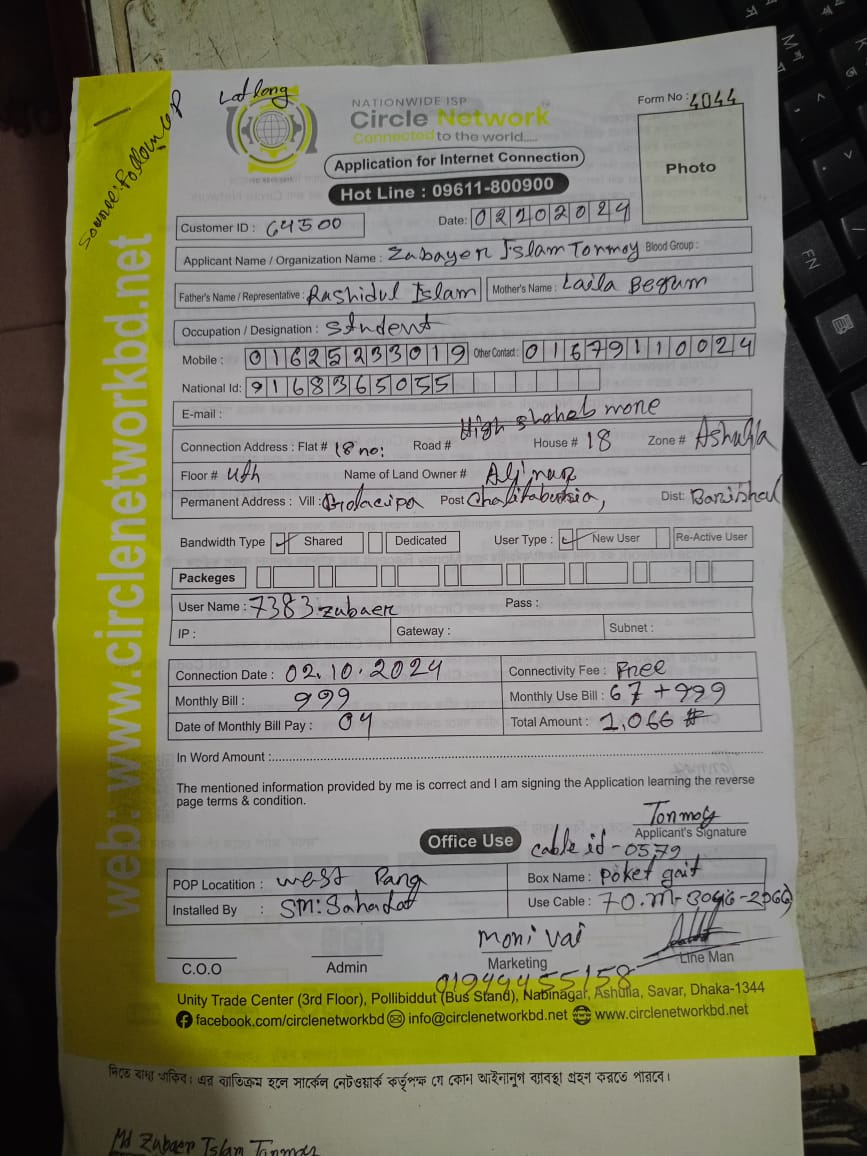 Lat long
Source: Follow UP
NATIONWIDE ISP
Circle Network
Connected to the world.....
Form No : 4044
Application for Internet Connection
Photo
Hot Line : 09611-800900
Customer ID : 64500
Date: 02202024
Applicant Name / Organization Name : Zubayer Islam Tonmoy Blood Group :
Father's Name / Representative : Rashidul Islam Mother's Name : Laila Begum
Occupation / Designation : Student
Mobile : 01625233019 Other Contact : 01679110024
National Id: 9168365055
E-mail :
Connection Address : Flat # 18 no: Road # High shaheb mone House # 18 Zone # Ashulia
Floor # uth Name of Land Owner #
Permanent Address : Vill : Golacipa Post Dist: Barishal
Bandwidth Type ✓ Shared Dedicated User Type : ✓ New User Re-Active User
Packeges
User Name : 7383.zubaer Pass :
IP : Gateway : Subnet :
Connection Date : 02.10.2024 Connectivity Fee : Free
Monthly Bill : 999 Monthly Use Bill : 67 + 999
Date of Monthly Bill Pay : 04 Total Amount : 1,066 #
In Word Amount :
The mentioned information provided by me is correct and I am signing the Application learning the reverse
page terms & condition.
Tonmoy
Applicant's Signature
Office Use
cable id - 0579
POP Locatition : west Pang Box Name : poket gait
Installed By : SM: Sahadat Use Cable : 70.m-
Moni Vai
C.O.O Admin Marketing Line Man
01944455158
Unity Trade Center (3rd Floor), Pollibiddut (Bus Stand), Nabinagar, Ashulia, Savar, Dhaka-1344
facebook.com/circlenetworkbd info@circlenetworkbd.net www.circlenetworkbd.net
web: www.circlenetworkbd.net
দিতে বাধ্য থাকিব। এর ব্যতিক্রম হলে সার্কেল নেটওয়ার্ক কর্তৃপক্ষ যে কোন আইনানুগ ব্যবস্থা গ্রহন করতে পারবে।
Md Zubaer Islam Tonmoy
FN